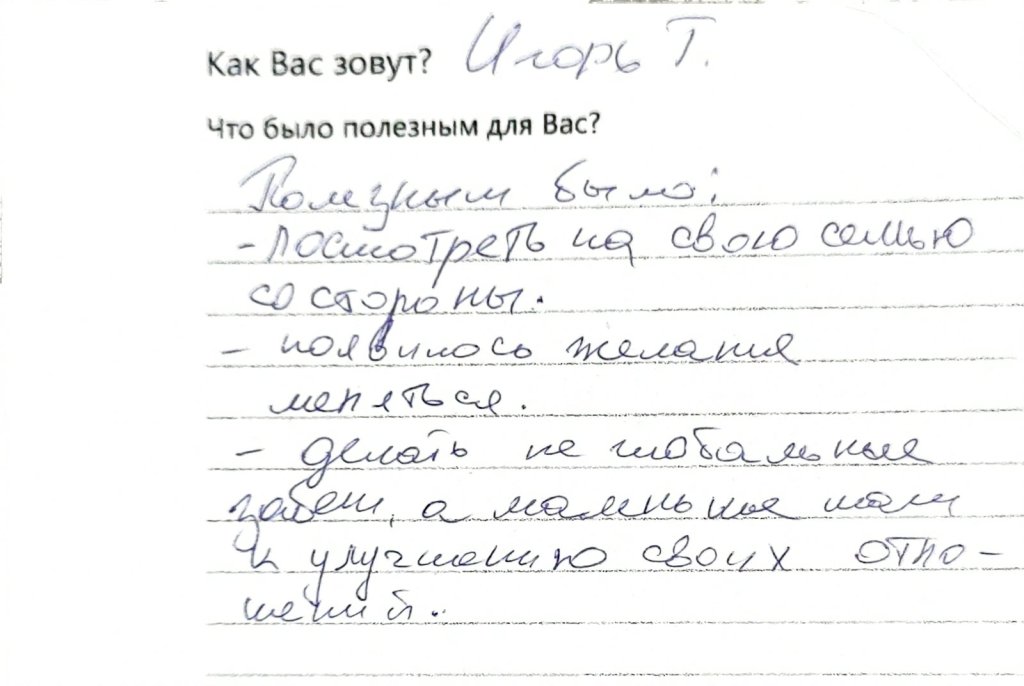 Как Вас зовут? Игорь Т.
Что было полезным для Вас?
Полезным было:
- посмотреть на свою семью
со стороны.
- появилось желания
меняться.
- делать не глобальные
забеги, а маленькие шаги
к улучшению своих отно-
шений.